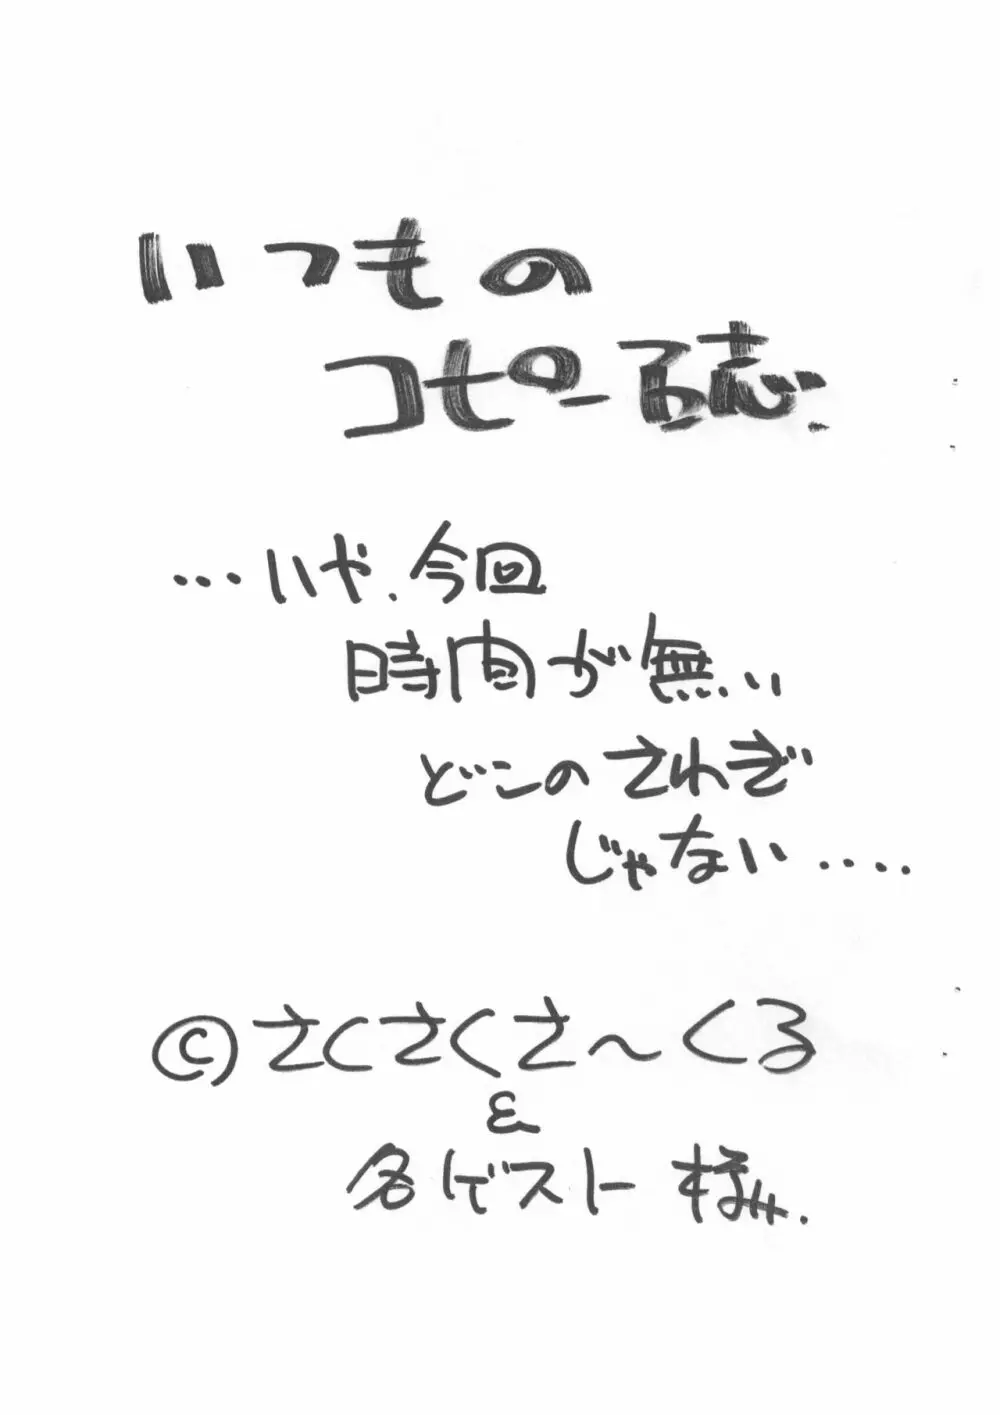 いつもの
コピー誌.
…いや.今回
時間が無い
どこのさわぎ
じゃない....
©さくさくさ〜くる
&
各ゲスト様.